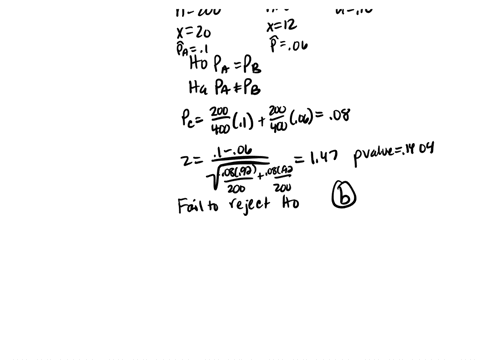 x=20 x=12
p̂A=.1 p̂=.06
Ho PA=PB
Ha PA≠PB
Pc=200/400(.1)+200/400(.06)=.08
z=.1-.06/√.08(.92)/200+.08(.92/200=1.47 pvalue=.1404
Fail to reject Ho b